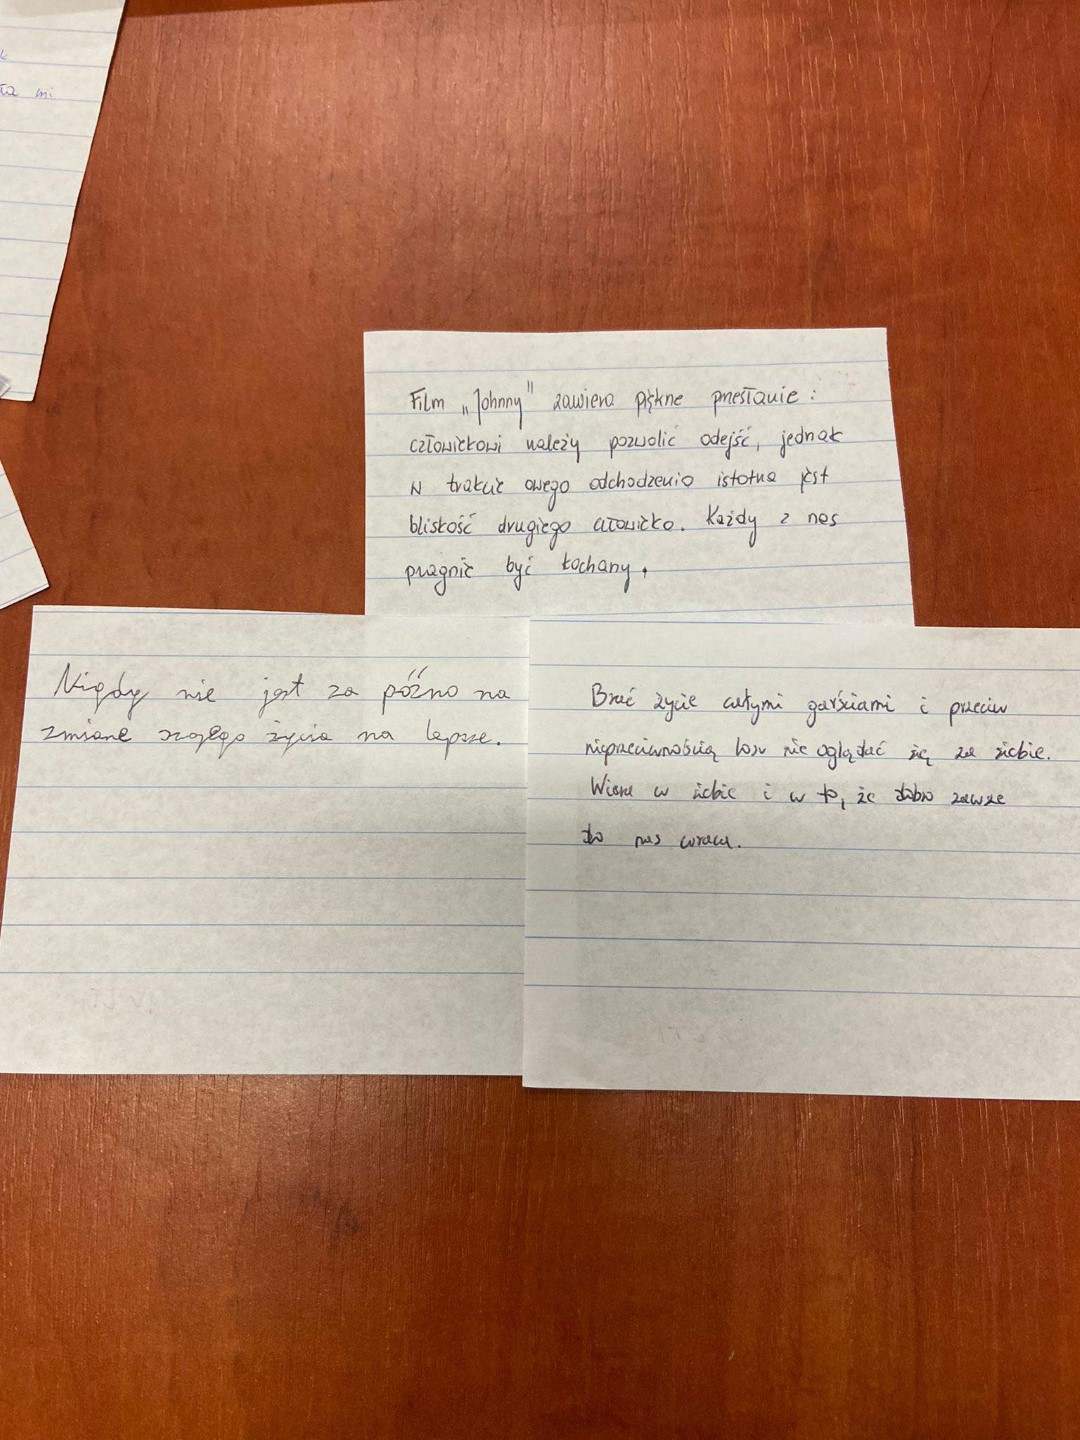 ta mi
Film „Johnny" zawiera piękne przesłanie:
człowiekowi należy pozwolić odejść, jednak
w trakcie owego odchodzenia istotna jest
bliskość drugiego człowieka. Każdy z nas
pragnie być kochany.
Nigdy nie jest za późno na
zmianę swojego życia na lepsze.
Brać życie całymi garściami i przeciw
nieprzeciwnością losu nie oglądać się za siebie.
Wiara w siebie i w to, że dobro zawsze
do nas wraca.